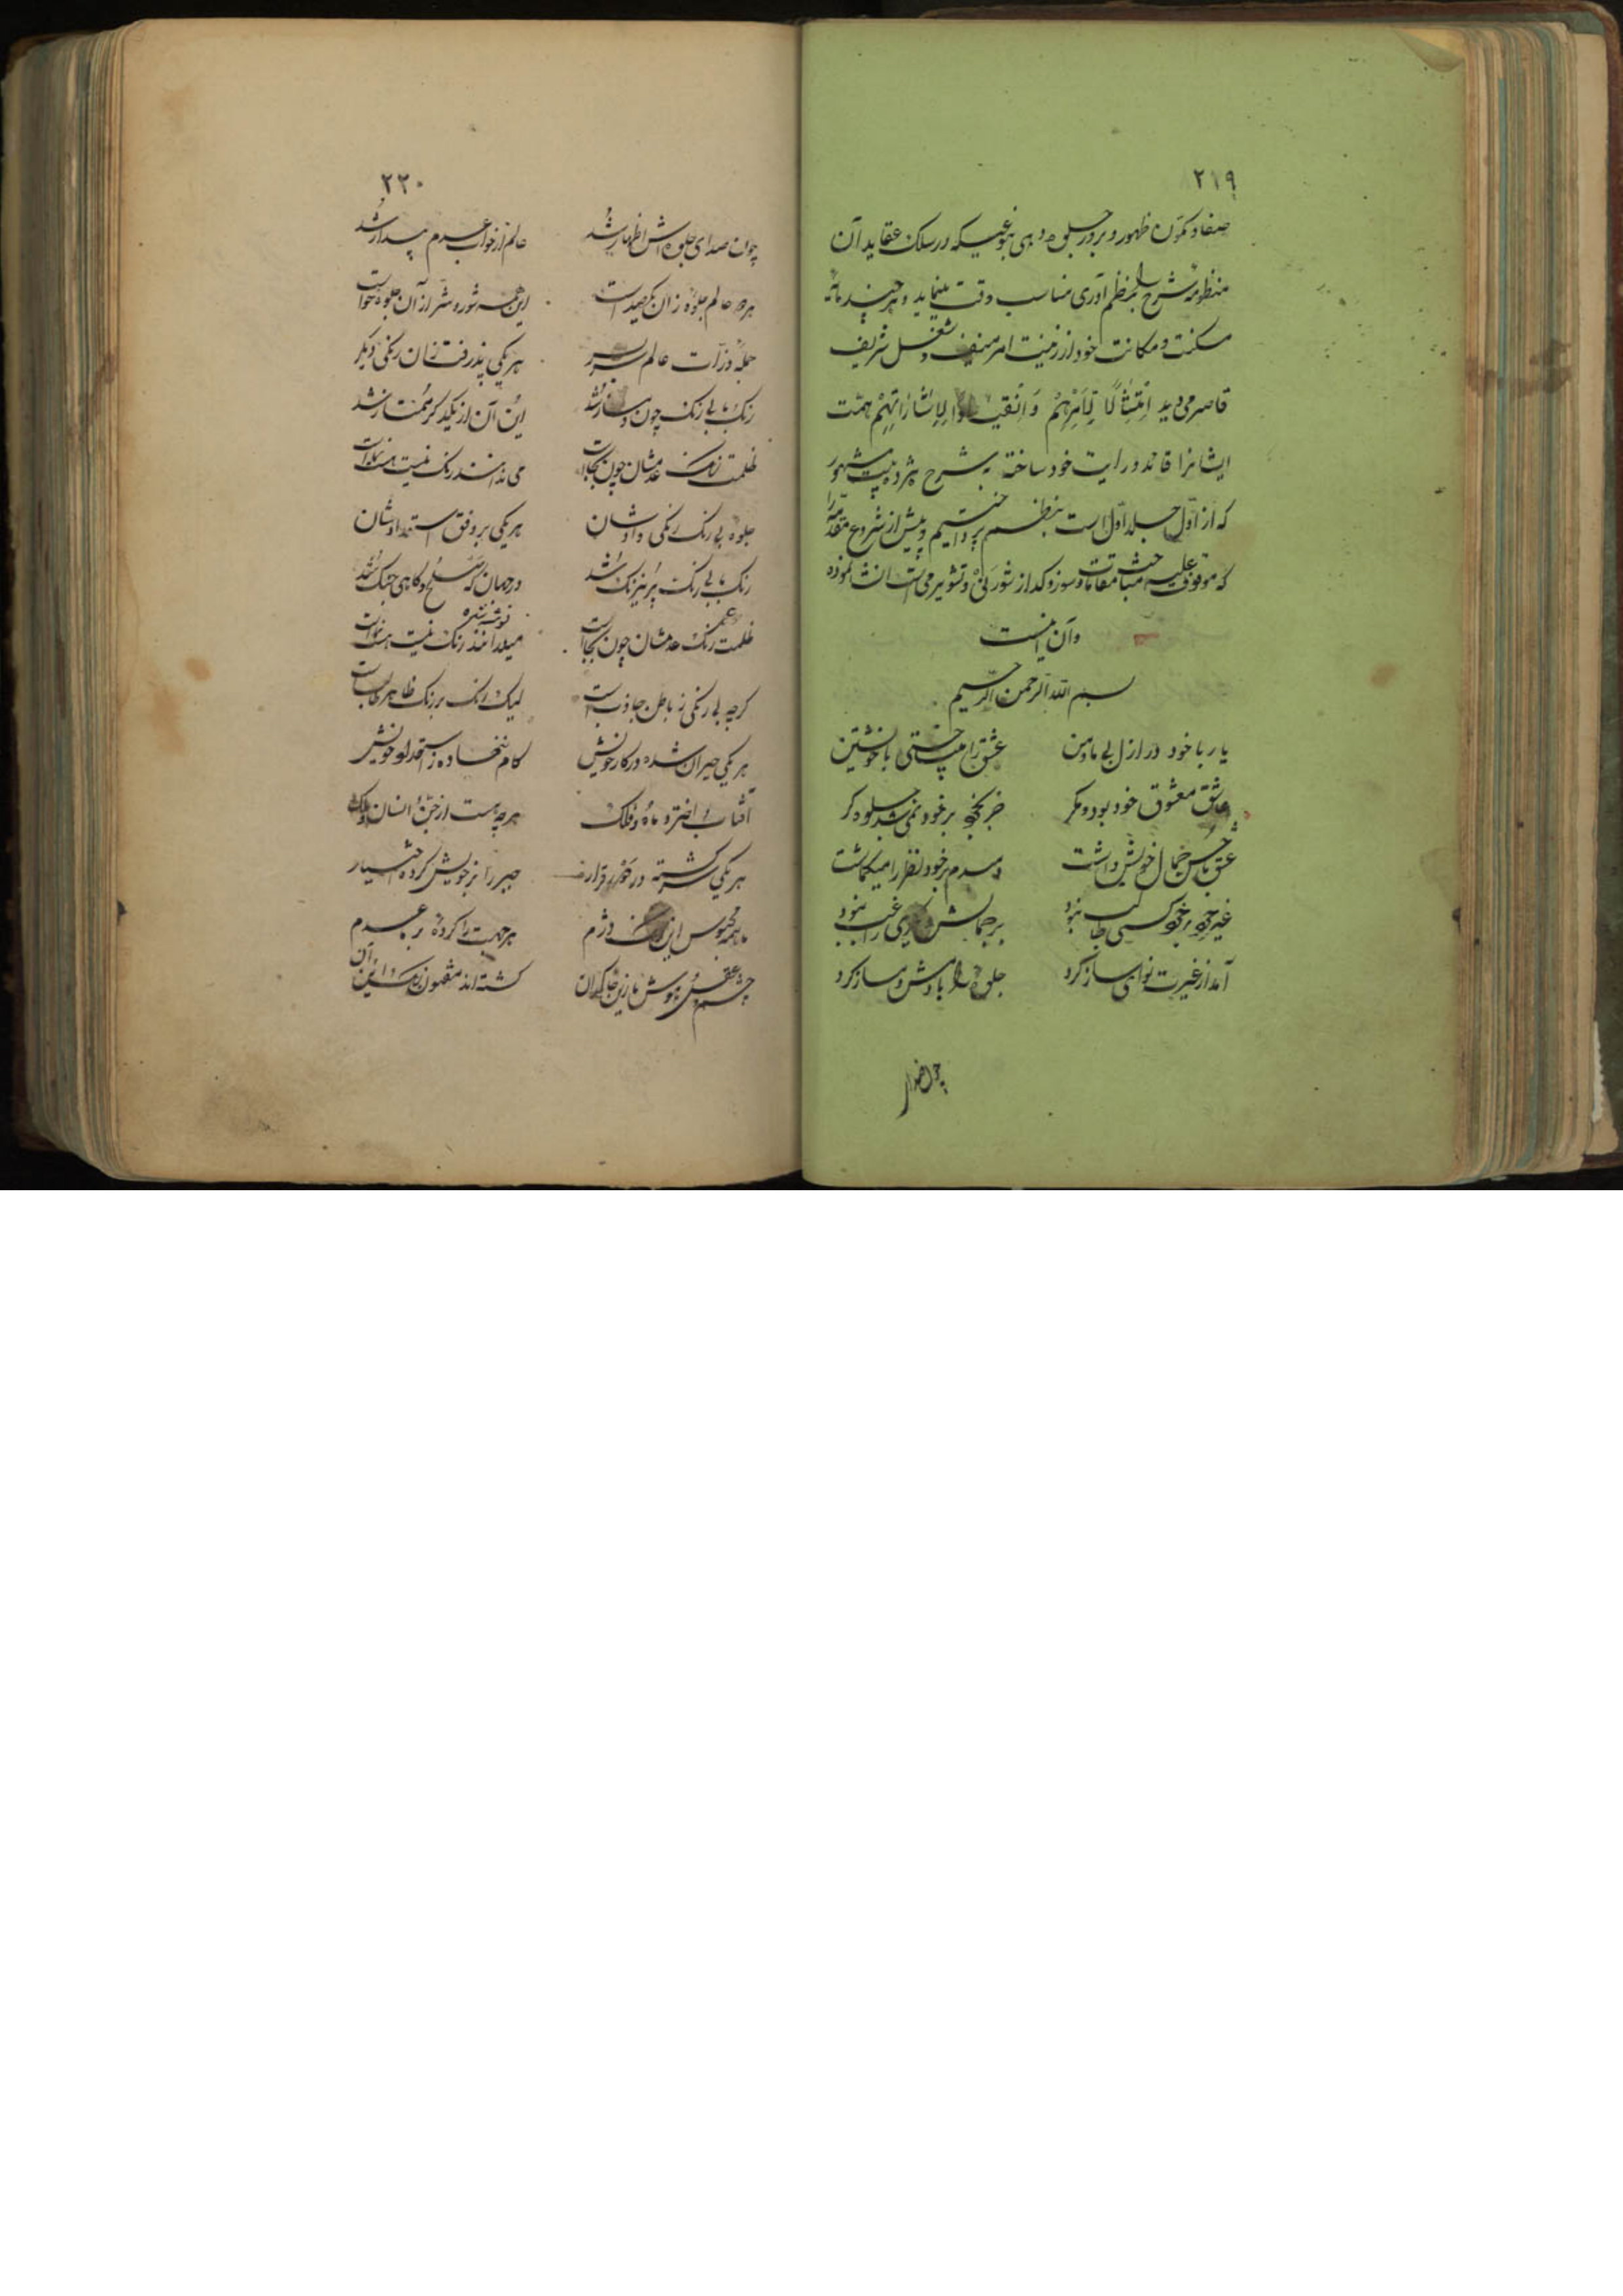 ۲۱۹
صفا و کمون ظهور و بروز جلوه دهی بنوعیکه در سلک عقاید آن
منظومه شرح را بنظم آوری مناسب وقت مینماید و هر چند مایه
مسکنت و مکانت خود از زینت امر منیف و شغل شریف
قاصر می دید امتثالا لامرهم وانقیادا لاشاراتهم همت
ایشانرا قائد و رایت خود ساخته بشرح هژده بیت مشهور
که از اول جلد اول است بنظم پرداختیم و پیش از شروع مقدمه را
که موقوف علیه مقامات و سوز و گداز شور نی و تشویر می است انشا نموده
و آن اینست
بسم الله الرحمن الرحیم
یار با خود در ازل بی ما و من
عشق را میباختی با خویشتن
عاشق معشوق خود بود و مگر
جز بخود بر خود نمی شد جلوه گر
عشق با حسن جمال خویش داشت
دمبدم بر خود نظر را میگماشت
غیر خود بر خود کسی طالب نبود
بر جمالش دیگری راغب نبود
آمد از غیرت نوای ساز کرد
جلوه را با دمش دمساز کرد
چون صدای
۲۲۰
چون صدای جلوه اش اظهار شد
عالم از خواب عدم بیدار شد
هر دو عالم جلوه زان یکصداست
این همه شور و شر از آن جلوه خواست
جمله ذرات عالم سربسر
هر یکی پذرفت زان رنگی دگر
رنگ با بی رنگ چون دمساز شد
این و آن از یکدگر ممتاز شد
ظلمت رنگ عدمشان چون بجاست
می ندانند رنگ نیست هست نماست
جلوه بی رنگ رنگی دادشان
هر یکی بر وفق استعدادشان
رنگ با بی رنگ پر نیرنگ شد
در جهان گه صلح و گاهی جنگ شد
ظلمت رنگ عدمشان چون بجاست
میندانند رنگ نیست هست نماست
گرچه بی رنگی ز باطن جاذب است
لیک رنگ بر رنگ ظاهر طالب است
هر یکی حیران شده در کار خویش
گام ننهاده ز استعداد خویش
آفتاب و اختر و ماه و فلک
هر چه هست از جن و انسان و ملک
هر یکی سرگشته در خور قرار
جبر را بر خویش کرده اختیار
ما همه محبوس این دژم
هر جهت را کرده بر عدم
چشم و عقل و هوش ما زین خاکدان
گشته اند مفتون رنگ این و آن